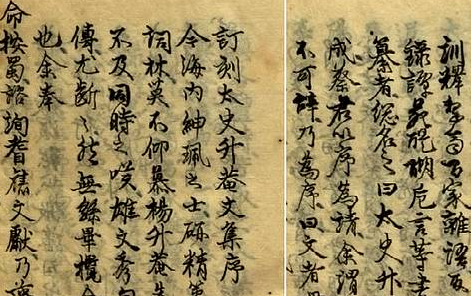 訂刻太史升菴文集序
今海内紳珮之士砥精
詞林莫不仰慕楊升菴先
不及同時之嘆雄文秀句
傳尤斷〻然無餘畢攬
也余奉
命按蜀諮詢耆舊文獻乃
訓釋百家雜語及
錄卮言等書
纂者總名之曰太史升
成蔡君以序為請余謂
不可辞乃為序曰文者